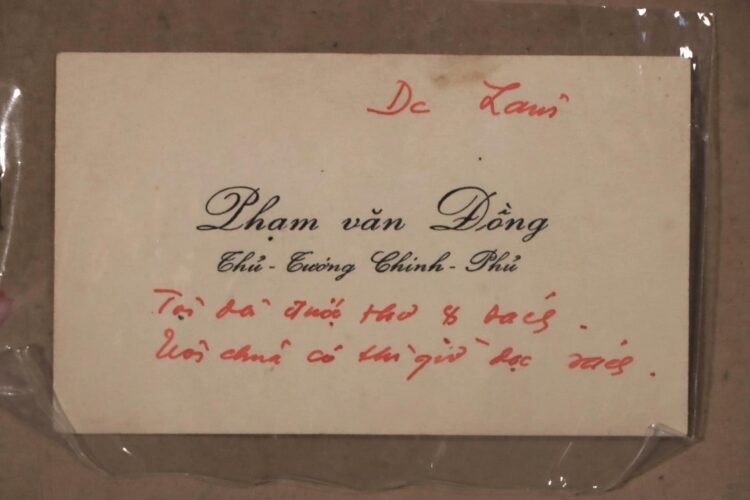 Phạm văn Đồng
Thủ - Tướng Chính - Phủ
Tôi đã được thơ & sách.
chưa có thì giờ đọc sách.